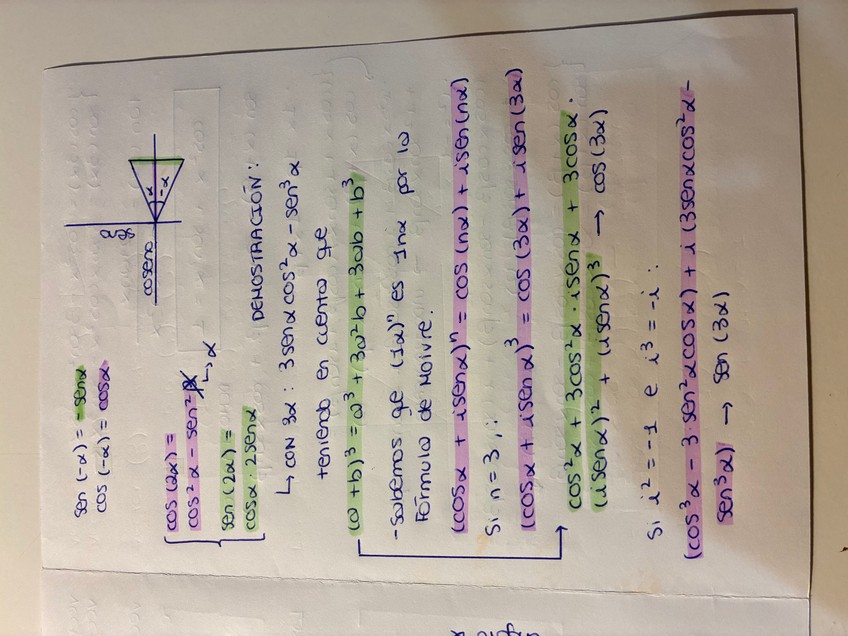 sen (-α) = -senα
cos (-α) = cosα
seno
coseno
α
-α
cos (2α) =
cos²α - sen²α
↳ α
sen (2α) =
cosα · 2senα
DEMOSTRACIÓN:
↳ CON 3α : 3senαcos²α - sen³α
teniendo en cuenta que
(a+b)³ = a³ + (3a²b + 3ab + b³
-Sabemos que (1α)ⁿ es 1nα por la
Fórmula de MOIVRE.
(cosα + isenα)ⁿ = cos (nα) + isen(nα)
Si n = 3, :
(cosα + isenα)³ = cos (3α) + isen (3α)
cos²α + 3cos²α · isenα + 3cosα ·
(isenα)² + (isenα)³ → cos (3α)
Si i² = -1 e i³ = -i :
(cos³α - 3·sen²αcosα) + i (3senαcos²α -
sen³α) → sen (3α)